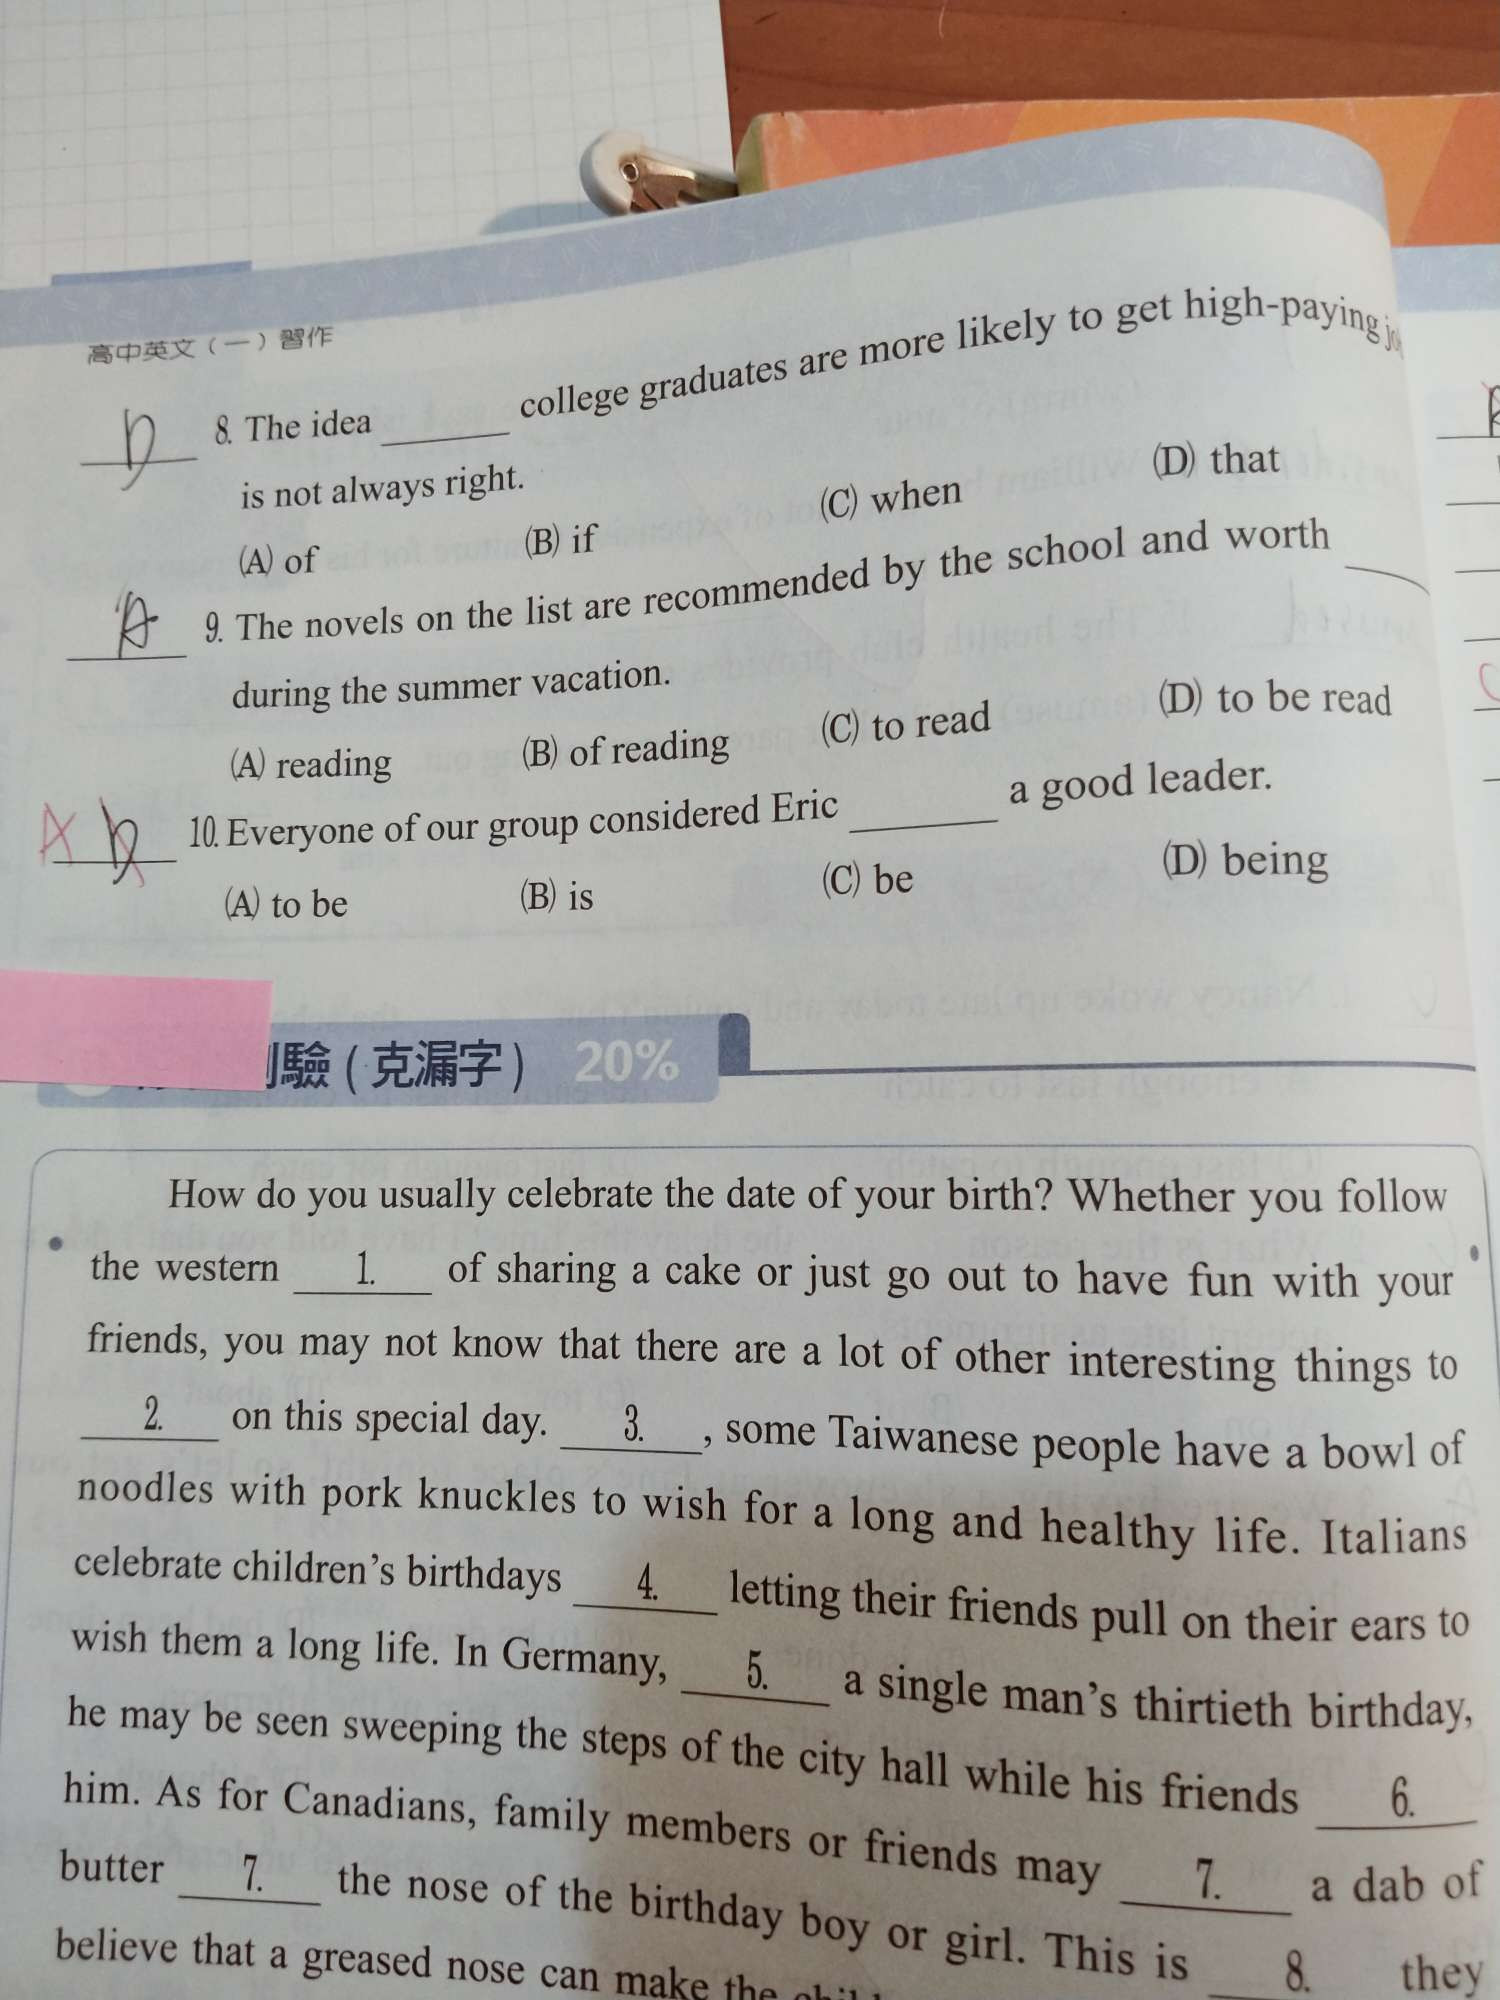 高中英文（一）習作
D 8. The idea ______ college graduates are more likely to get high-paying
is not always right.
(A) of (B) if (C) when (D) that
A 9. The novels on the list are recommended by the school and worth ______
during the summer vacation.
(A) reading (B) of reading (C) to read (D) to be read
A D 10. Everyone of our group considered Eric ______ a good leader.
(A) to be (B) is (C) be (D) being
驗(克漏字) 20%
How do you usually celebrate the date of your birth? Whether you follow
the western 1. of sharing a cake or just go out to have fun with your
friends, you may not know that there are a lot of other interesting things to
2. on this special day. 3. , some Taiwanese people have a bowl of
noodles with pork knuckles to wish for a long and healthy life. Italians
celebrate children's birthdays 4. letting their friends pull on their ears to
wish them a long life. In Germany, 5. a single man's thirtieth birthday,
he may be seen sweeping the steps of the city hall while his friends 6.
him. As for Canadians, family members or friends may 7. a dab of
butter 7. the nose of the birthday boy or girl. This is 8. they
believe that a greased nose can make the